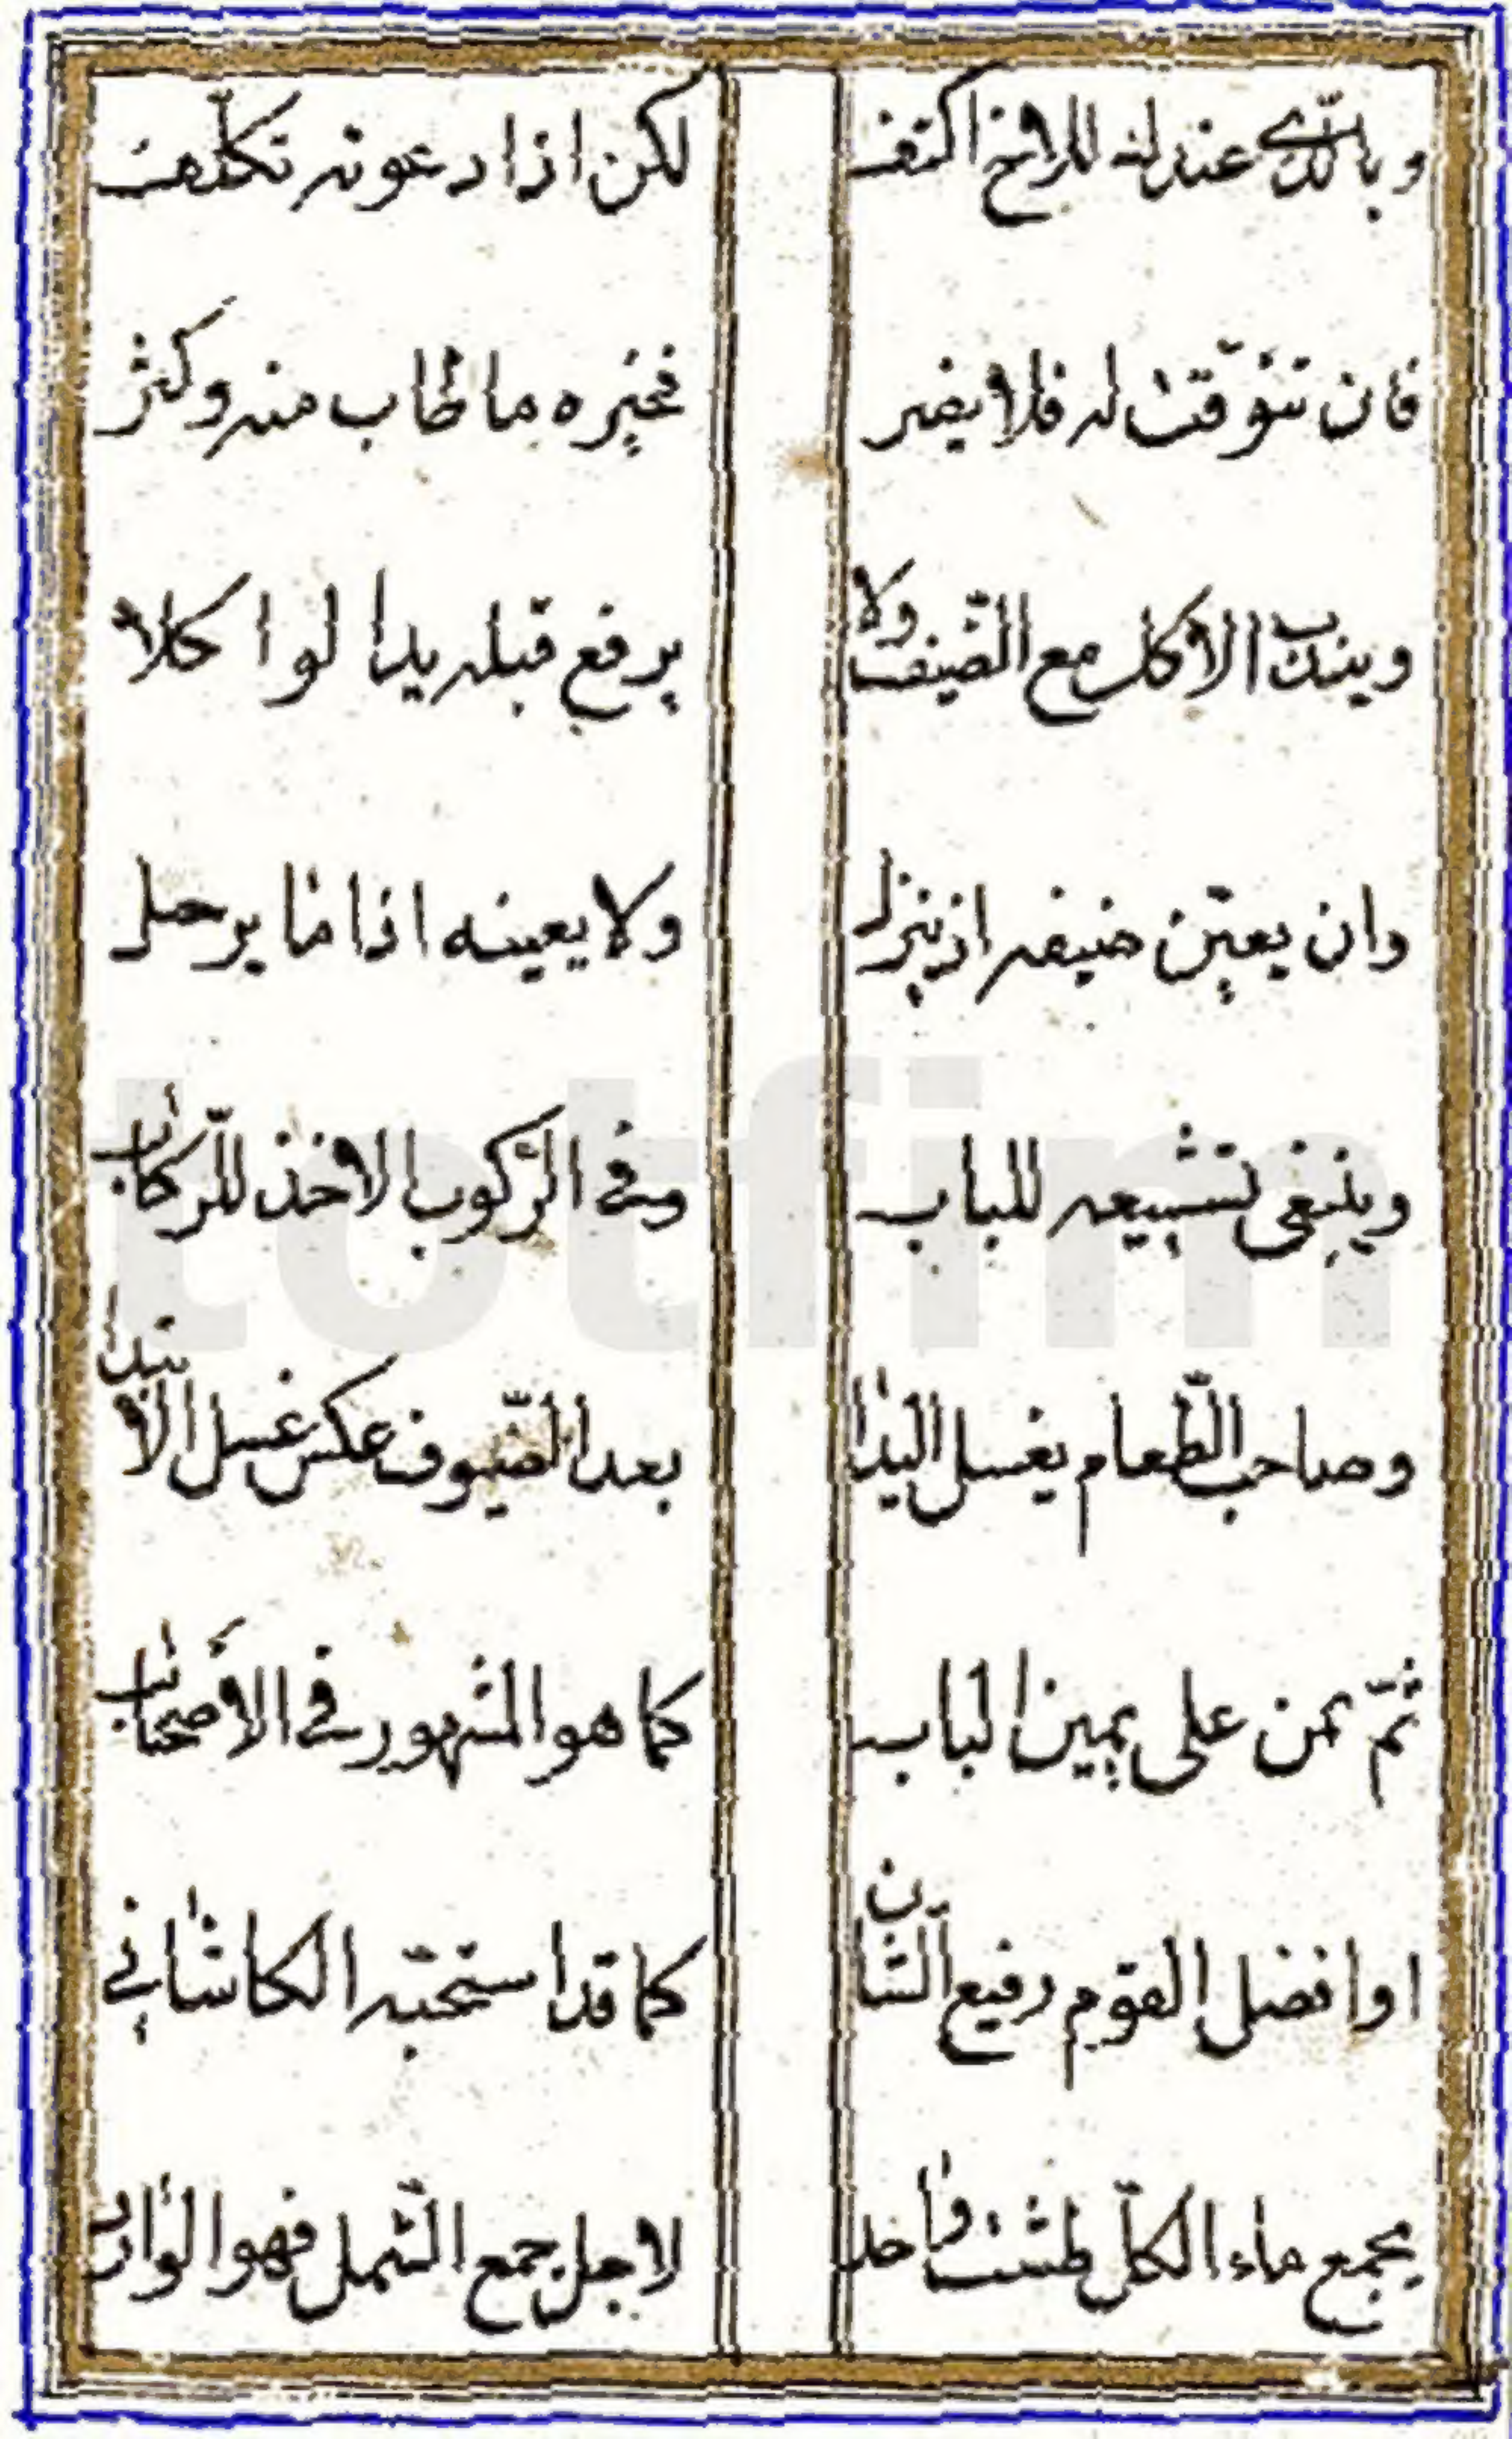 وبالّذي عندك للاخ اكتف لكن اذا دعوته تكلّف
فان تنوّقت له فلا يضر فخيره ما طاب منه وكثر
ويندب الاكل مع الضّيف ولا يرفع قبله يدا لو اكلا
وان يعيّن ضيفه اذ ينزل ولا يعينه اذا ما يرحل
وينبغي تشييعه للباب وفي الرّكوب الاخذ للّركاب
وصاحب الطّعام يغسل اليدا بعد الضّيوف عكس غسل الابتدا
ثمّ بمن على يمين الباب كما هو المشهور في الأصحاب
او افضل القوم رفيع الشّان كما قد استحبّه الكاشاني
يجمع ماء الكلّ طشت واحد لاجل جمع الشّمل فهو الوارد
totfim